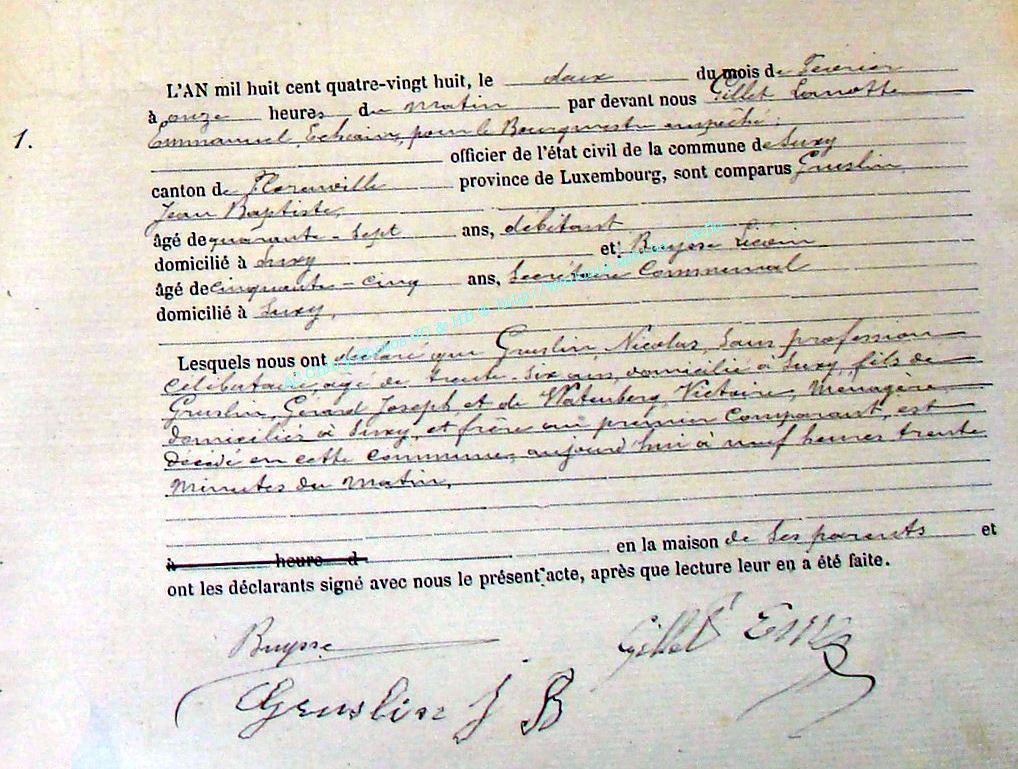 L'AN mil huit cent quatre-vingt huit, le deux du mois de Fevrier
à onze heures du matin par devant nous Gillet Lamotte
1. Emmanuel, Echevin, pour le Bourgmestre empeché;
officier de l'état civil de la commune de Suxy
canton de Florenville province de Luxembourg, sont comparus Gruslin,
Jean Baptiste,
âgé de quarante-sept ans, débitant
domicilié à Suxy et Buysse Liévin
âgé de cinquante-cinq ans, Secrétaire Communal
domicilié à Suxy,
Lesquels nous ont déclaré que Gruslin, Nicolas, sans profession
célibataire, agé de trente-six ans, domicilié à Suxy, fils de
Gruslin, Gérard Joseph, et de Watenberg, Victoire, Ménagère
domiciliés à Suxy, et frère au premier Comparant, est
décédé en cette commune, aujourd'hui à neuf heures trente
minutes du matin,
à heure d en la maison de ses parents et
ont les déclarants signé avec nous le présent acte, après que lecture leur en a été faite.
Buysse Gillet Emm
Gruslin J B